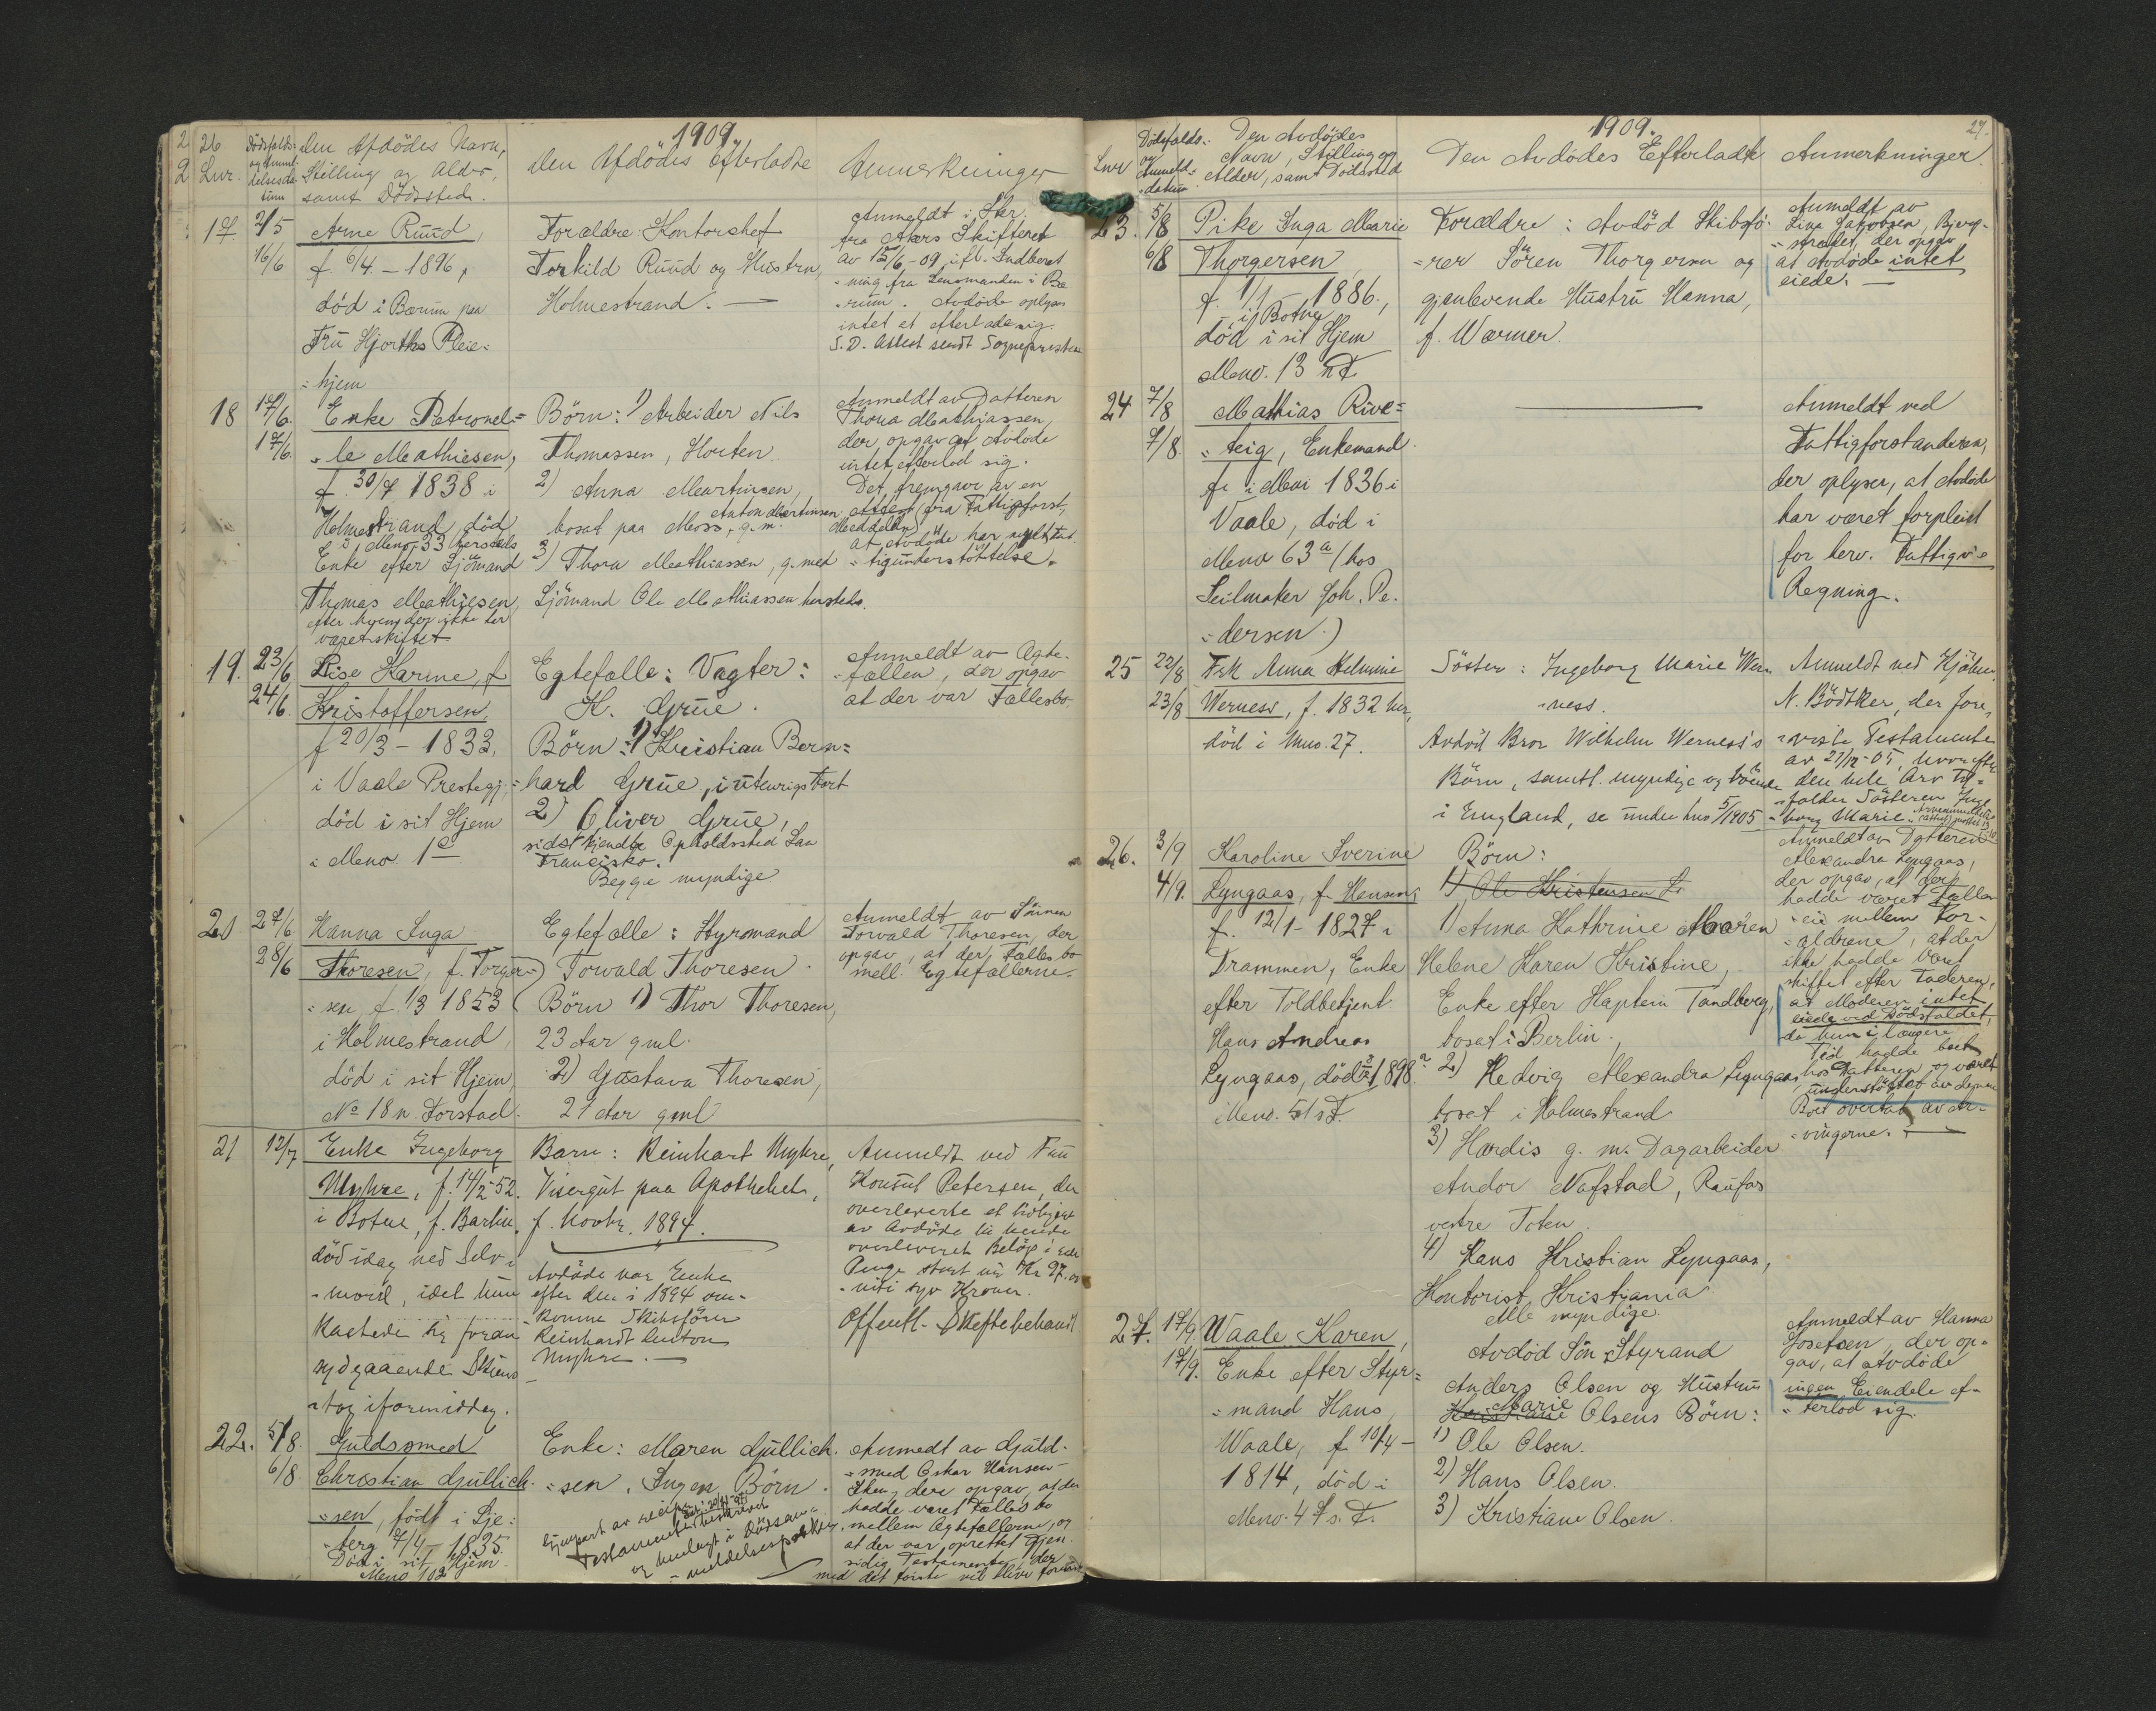 26
1909.
Lnr.
Dödsfalds-
og Anmel-
delsesda-
tum
Den Afdödes Navn,
Stilling og Alder,
samt Dödssted.
Den Afdödes Efterladte
Anmerkninger
17
2/5
16/6
Arne Ruud,
f. 6/4 - 1896,
död i Bærum paa
Fru Hjorths Pleie-
hjem
Forældre: Kontorchef
Torkild Ruud og Hustru,
Holmestrand. —
Anmeldt i Skr.
fra Akers Skifteret
av 15/6-09 ifl. Indberet-
ning fra Lensmanden i Bæ-
rum. Avdöde oplyses
intet at efterlade sig.
S.D. Attest sendt Sognepresten
18
17/6.
17/6.
Enke Petronel-
le Mathiesen,
f. 30/7 1838 i
Holmestrand, död
i Meno. 33 hersteds
Enke efter Sjömand
Thomas Mathiesen,
efter hvem der ikke her
været skiftet
Börn: 1) Arbeider Nils
Thomassen, Horten.
2) Anna Martinsen,
bosat paa Moss, g.m. Anton Martinsen
3) Thora Mathiassen, g. med
Sjömand Ole Mathiassen hersteds.
Anmeldt av Datteren
Thora Mathiassen,
der opgav at Avdöde
intet efterlod sig.
Det fremgaar av en
Attest fra Fattigforst,
Meddelelse
at Avdöde har nytt Fat-
tigunderstöttelse.
19.
23/6
24/6.
Lise Karine, f.
Kristoffersen,
f 20/3 - 1833,
i Vaale Prestegj.
död i sit Hjem
i Meno. 1c
Egtefælle: Vagter:
K. Grue.
Börn: 1) Kristian Bern-
hard Grue, i utenrigs Fart
2) Oliver Grue,
sidst kjendte Opholdssted San
Francisko.
Begge myndige
Anmeldt av Ægte-
fællen, der opgav
at der var Fællesbo.
20
27/6
28/6
Hanna Inga
Thoresen, f. Torger-
sen, f. 1/3 1853
i Holmestrand,
död i sit Hjem
No 18 n. Forstad.
Egtefælle: Styrmand
Torvald Thoresen.
Börn 1) Thor Thoresen,
23 Aar gml.
2) Gustava Thoresen,
21 Aar gml
Anmeldt av Sönnen
Torvald Thoresen, der
opgav, at der Fællesbo
mell. Egtefællerne.
21
12/7
Enke Ingeborg
Myhre, f. 14/2 52.
i Botne, f. Barlin
död idag ved Selv-
mord, idet hun
kastede sig foran
nydgaaende Skiens-
tog i formiddag.
Barn: Reinhart Myhre,
Visergut paa Apotheket,
f. Novbr. 1894.
Avdöde var Enke
efter den i 1894 om-
komne Skibsförer
Reinhardt Anton
Myhre. —
Anmeldt ved Fru
Konsul Petersen, der
overleverte et
av Avdöde til hende
overleveret Belöp i
Penge stort kr. Kr 97. —
niti syv Kroner.
Offentl. Skiftebehandl
22.
5/8.
6/8.
Guldsmed
Christian Gullich-
sen, födt i Lje-
berg 7/4 - 1835.
Död i sit Hjem.
Meno 102
Enke: Maren Gullich-
sen. Ingen Börn.
Gjenpart av
Testamente
og henlagt i Dödsan-
meldelsespakken
Anmedt av Guld-
smed Oskar Hansen
der opgav, at der
hadde været Fælles bo
mellem Ægtefællerne, og
at der var oprettet Gjen-
sidig Testamente, der
med det förste vil blive
27.
1909.
Lnr
Dödsfalds-
og
Anmeld-
datum
Den Avdödes
Navn, Stilling og
Alder, samt Dodssted
Den Avdödes Efterladte
Anmerkninger.
23.
5/8
6/8
Pike Inga Marie
Thorgersen,
f. 1/1 - 1886.,
i Botne
död i sit Hjem
Meno. 13 n.F.
Forældre: Avdöd Skibsfö-
rer Sören Thorgersen og
gjenlevende Hustru Hanna,
f. Wærner.
Anmeldt av
Lina Jakobsen, Bjerg-
stredet, der opgav
at Avdöde intet
eiede. —
24
7/8
7/8.
Mathias Rive-
teig, Enkemand.
f. i Mai 1836 i
Vaale, död i
Meno 63a (hos
Seilmaker Joh. Pe-
dersen.)
Anmeldt ved
Fattigforstanderen,
der oplyser, at Avdöde
har været forpleiet
for herv. Fattigv's
Regning.
25
22/8
23/8
Frk Anna Helmine
Werness, f. 1832 her,
död i Mno. 27.
Söster: Ingeborg Marie Wer-
ness.
Avdöd Bror Wilhelm Werness's
Börn, samtl. myndige og boende
i England, se under Lno 5/1905
Anmeldt ved Hjalmar
N. Bödtker, der fore-
viste Testamente
av 21/12-05, hvorefter
den hele Arv til-
falder Sösteren Inge-
borg Marie.
26.
3/9
4/9.
Karoline Sverine
Lyngaas, f. Hansen,
f. 12/1 - 1827 i
Drammen, Enke
efter Toldbetjent
Hans Andreas
Lyngaas, död 1898.
i Meno. 51 s.F.
Börn:
1) Ole Kristensen L.
1) Anna Kathrine Maren
Helene Karen Kristine,
Enke efter Kaptein Tandberg,
bosat i Berlin.,
2) Hedvig Alexandra Lyngaas,
bosat i Holmestrand
3) Hardis g. m. Dagarbeider
Andor Nafstad, Raufos
vestre Toten.
4) Hans Kristian Lyngaas,
Kontorist, Kristiania
Alle myndige.
Anmeldt av Datteren
Alexandra Lyngaas,
der opgav, at der
hadde været Fælles-
eie mellem For-
ældrene, at der
ikke hadde været
skiftet efter Faderen,
at Moderen intet
eiede ved Dödsfaldet,
da hun i længere
Tid hadde boet
hos Datteren og været
understöttet av denne
Boet overtat av Ar-
vingerne. —
27.
17/9.
17/9.
Waale Karen,
Enke efter Styr-
mand Hans
Waale, f 10/4 -
1814, död i
Meno. 47 s. F.
Avdöd Sön Styrand
Anders Olsen og Hustru
Marie
Kristiane Olsens Börn:
1) Ole Olsen.
2) Hans Olsen.
3) Kristiane Olsen.
Anmeldt av Hanna
Josefsen, der op-
gav, at Avdöde
ingen Eiendele ef-
terlod sig.